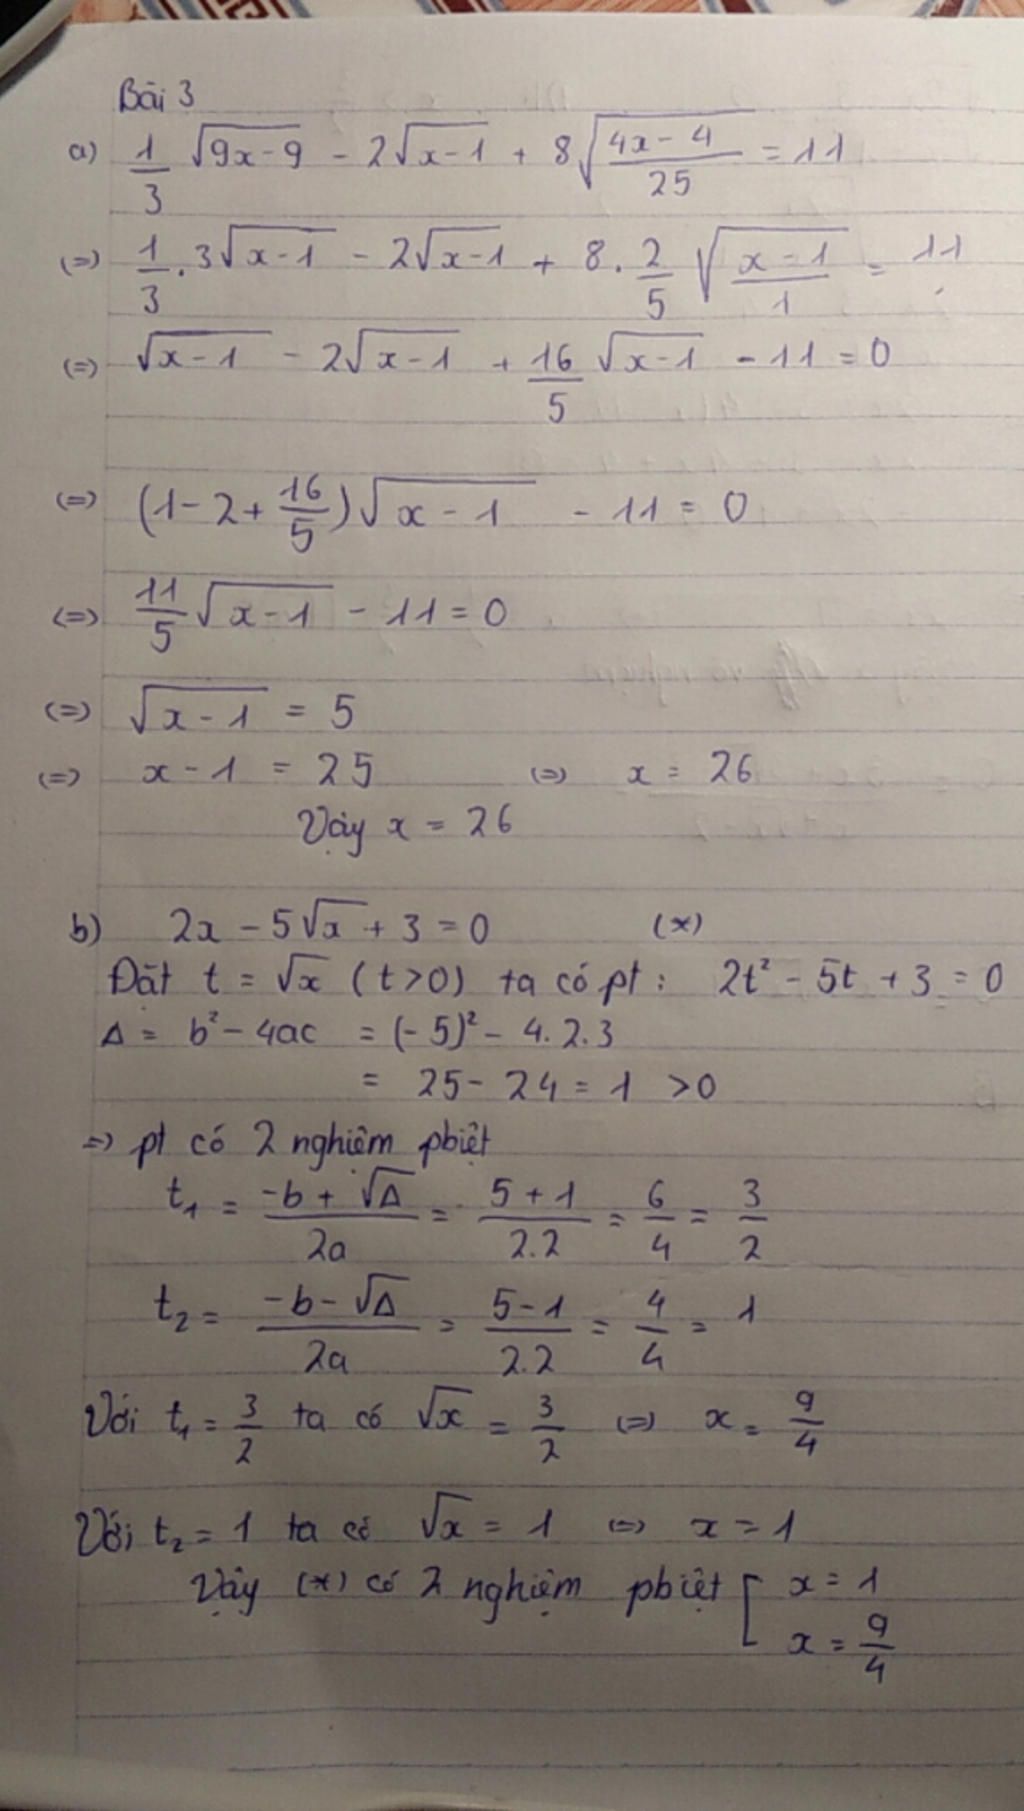 Bài 3
a) 1/3 √(9x-9) - 2√(x-1) + 8√((4x-4)/25) = 11
(=) 1/3 . 3√(x-1) - 2√(x-1) + 8 . 2/5 √((x-1)/1) = 11
(=) √(x-1) - 2√(x-1) + 16/5 √(x-1) - 11 = 0
(=) (1-2+16/5)√(x-1) - 11 = 0
(=) 11/5 √(x-1) - 11 = 0
(=) √(x-1) = 5
(=) x-1 = 25 (=) x = 26
Vậy x = 26
b) 2x - 5√x + 3 = 0 (*)
Đặt t = √x (t>0) ta có pt : 2t² - 5t + 3 = 0
Δ = b² - 4ac = (-5)² - 4.2.3
= 25 - 24 = 1 >0
=) pt có 2 nghiệm pbiệt
t₁ = (-b+√Δ)/2a = (5+1)/2.2 = 6/4 = 3/2
t₂ = (-b-√Δ)/2a = (5-1)/2.2 = 4/4 = 1
Với t₁ = 3/2 ta có √x = 3/2 (=) x = 9/4
Với t₂ = 1 ta có √x = 1 (=) x = 1
Vậy (*) có 2 nghiệm pbiệt [ x = 1
x = 9/4